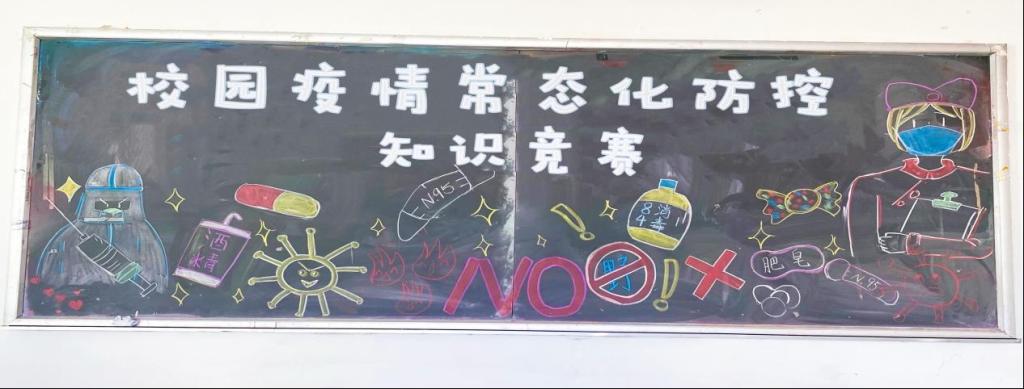 校园疫情常态化防控
知识竞赛
N95
酒精
84消毒
NO
野
肥皂
N95